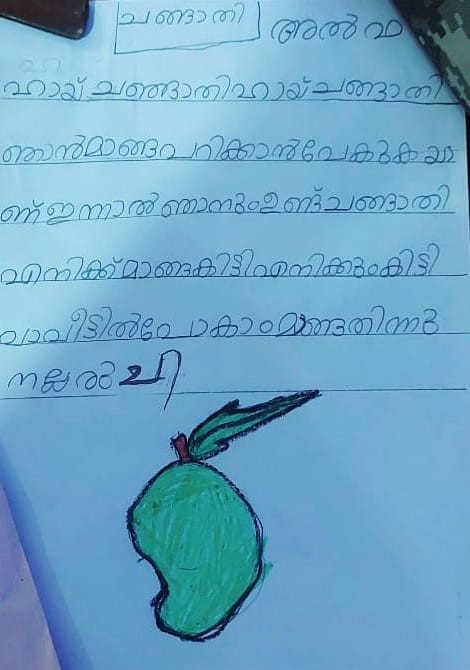 ചങ്ങാതി
അൽഫ
ഹായ് ചങ്ങാതി ഹായ് ചങ്ങാതി
ഞാൻ മാങ്ങ പറിക്കാൻ പോകുകയാ
ണ് ഇന്നാൽ ഞാനും ഉണ്ട് ചങ്ങാതി
എനിക്ക് മാങ്ങ കിട്ടി എനിക്കും കിട്ടി
വാ വീട്ടിൽ പോകാം മാങ്ങ തിന്നൻ
നല്ല രുചി